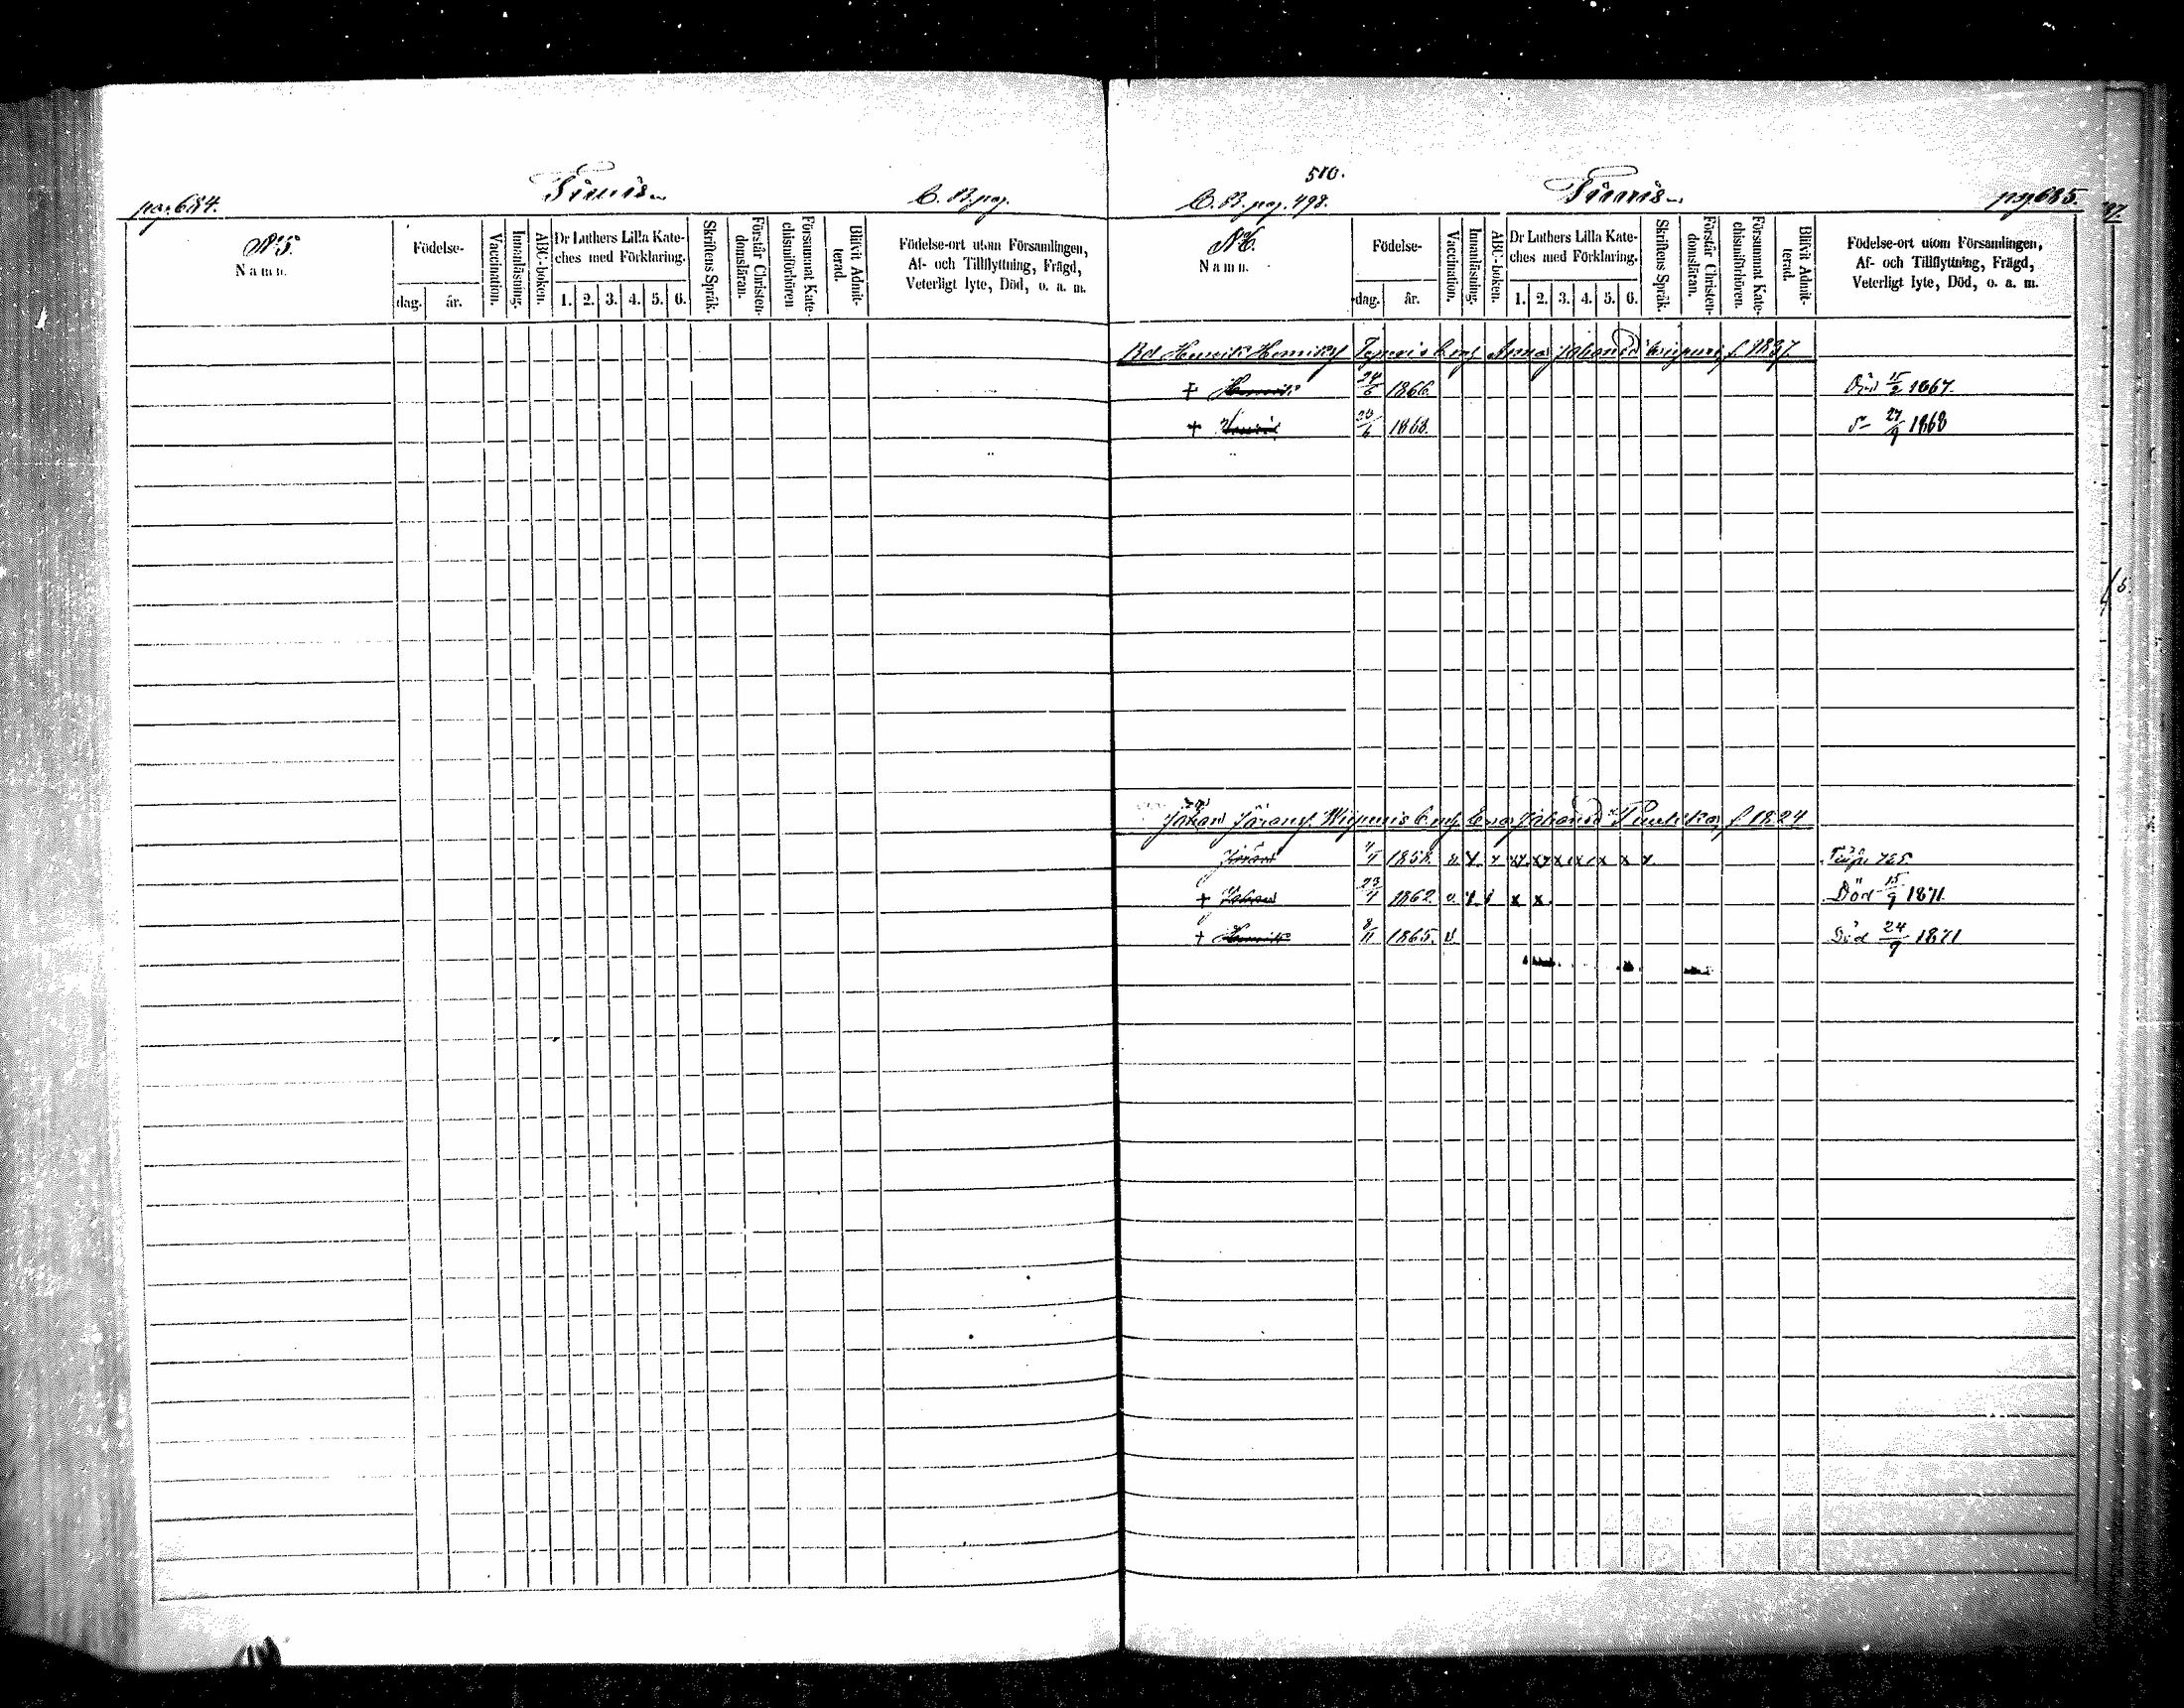 pag. 684.
Tiuris
C. B. pag.
N:5.
Namn.
Födelse-
dag.
år.
Vaccination.
Innanläsning.
ABC-boken.
Dr Luthers Lilla Kate-
ches med Förklaring.
1. 2. 3. 4. 5. 6.
Skriftens Språk.
Förstår Christen-
domsläran.
Försummat Kate-
chismiförhören
Blifvit Admit-
terad.
Födelse-ort utom Församlingen,
Af- och Tillflyttning, Frägd,
Veterligt lyte, Död, o. a. m.
510.
C. B. pag. 498.
Tiuris
pag. 685.
N:6.
Namn.
Födelse-
dag.
år.
Vaccination.
Innanläsning.
ABC-boken.
Dr Luthers Lilla Kate-
ches med Förklaring.
1. 2. 3. 4. 5. 6.
Skriftens Språk.
Förstår Christen-
domsläran.
Försummat Kate-
chismiförhören.
Blifvit Admit-
terad.
Födelse-ort utom Församlingen,
Af- och Tillflyttning, Frägd,
Veterligt lyte, Död, o. a. m.
Henrik Henriks. Anna Johansd. f. 1837.
+ Henrik 24/6 1866. Död 15/2 1867.
+ 1868. 27/9 1868
Johan Wipuris Eva Johansd. f. 1824
Jöran 1858. v. x x x x x x x x x
+ Johan 23/4 1862. v. x x x Död 15/9 1871.
+ Henrik 8/11 1865. v Död 24/9 1871
97.